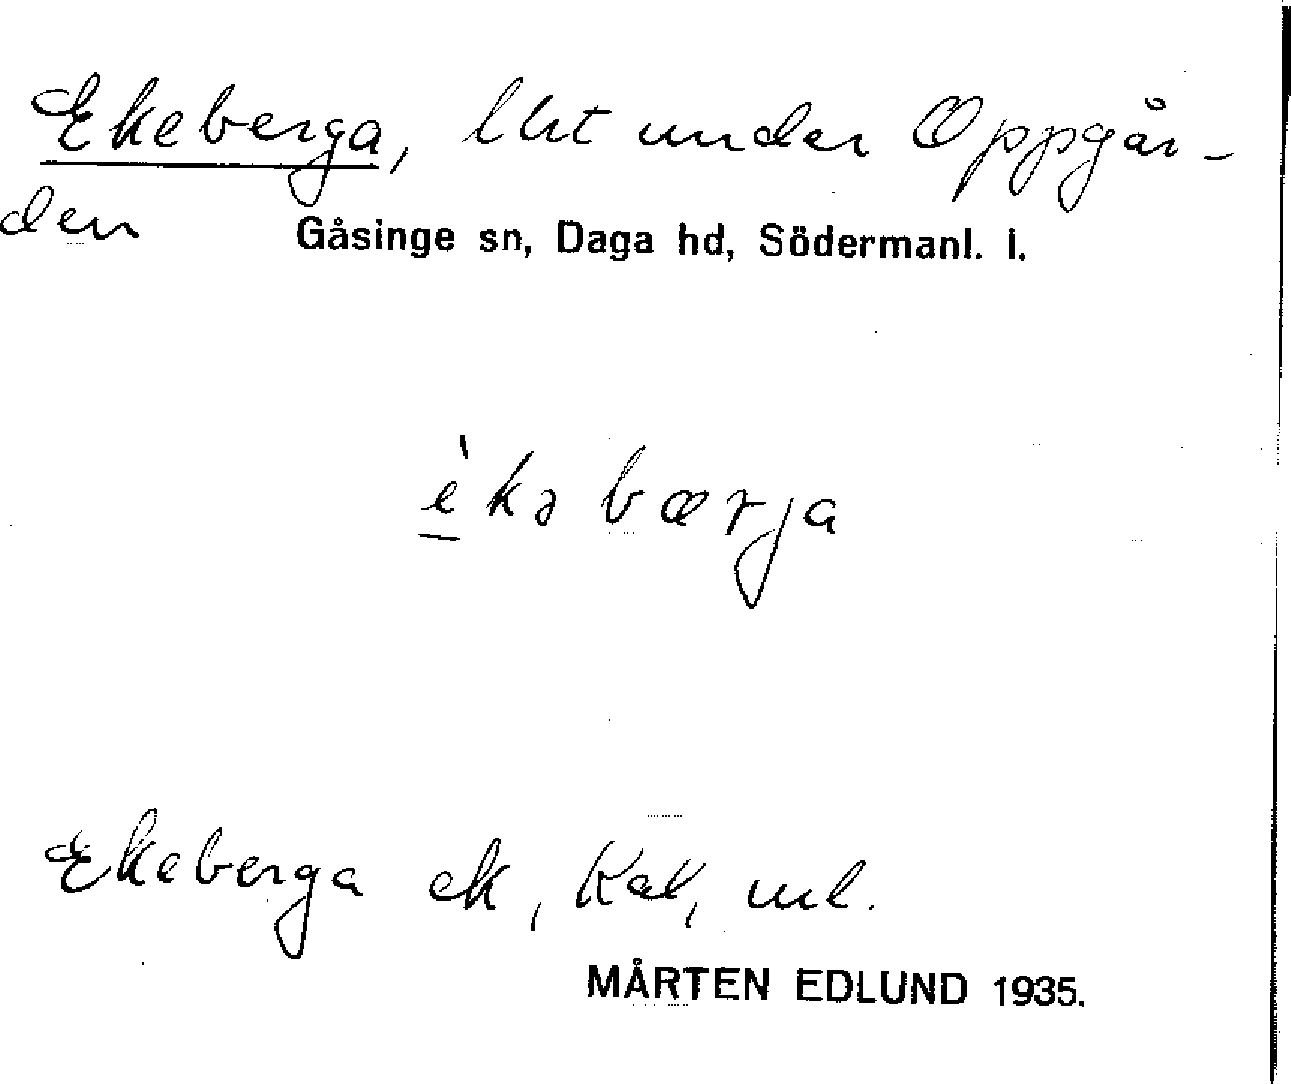 Ekeberga, lht under Oppgår-
den
Gåsinge sn, Daga hd, Södermanl. l.
èkə bærja
Ekeberga ek, Kal, ml.
MÅRTEN EDLUND 1935.